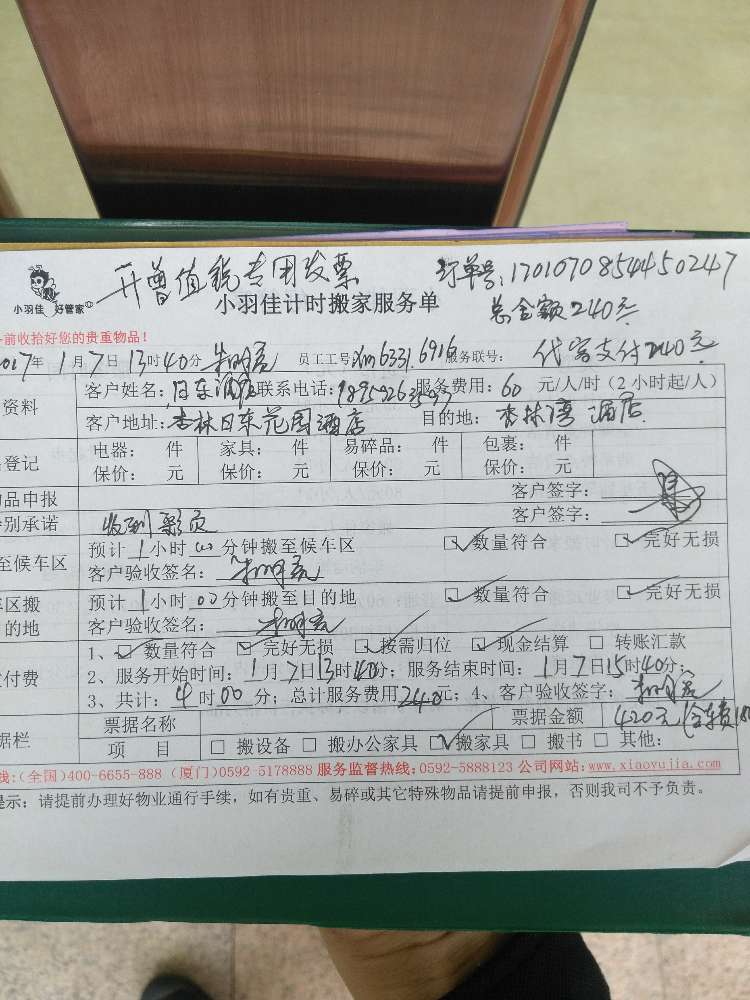 开增值税专用发票 订单号:17010708544450247
小羽佳 好管家 小羽佳计时搬家服务单 总金额240元
前收拾好您的贵重物品!
017年1月7日13时40分 员工工号 6331.6916 服务联号: 代客支付240元
资料 客户姓名:日东酒店 联系电话: 服务费用:60元/人/时(2小时起/人)
客户地址:杏林日东花园酒店 目的地:杏林湾酒店
登记 电器: 件 家具: 件 易碎品: 件 包裹: 件
保价: 元 保价: 元 保价: 元 保价: 元
品申报 客户签字:
别承诺 收到彩页 客户签字:
至候车区 预计1小时00分钟搬至候车区 ☑数量符合 ☑完好无损
客户验收签名:
区搬 预计1小时00分钟搬至目的地 ☑数量符合 ☑完好无损
的地 客户验收签名:
付费 1、☑数量符合 ☑完好无损 ☑按需归位 ☑现金结算 □转账汇款
2、服务开始时间:1月7日13时40分;服务结束时间:1月7日15时40分;
3、共计:4时00分;总计服务费用240元;4、客户验收签字:
据栏 票据名称 票据金额 420元(含车费180
项 目 □搬设备 □搬办公家具 ☑搬家具 □搬书 □其他:
线:(全国)400-6655-888 (厦门)0592-5178888 服务监督热线:0592-5888123 公司网站:www.xiaoyujia.com
提示:请提前办理好物业通行手续,如有贵重、易碎或其它特殊物品请提前申报,否则我司不予负责。